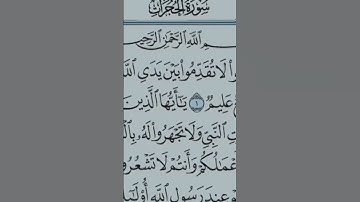 سُورَةُ الْحُجُرَاتِ
اللَّهِ الرَّحْمَٰنِ الرَّحِيمِ
لَا تُقَدِّمُوا بَيْنَ يَدَيِ
عَلِيمٌ ۝١ يَا أَيُّهَا الَّذِينَ
النَّبِيِّ وَلَا تَجْهَرُوا لَهُ
وَأَنتُمْ لَا تَشْعُرُو
عِندَ رَسُولِ اللَّهِ